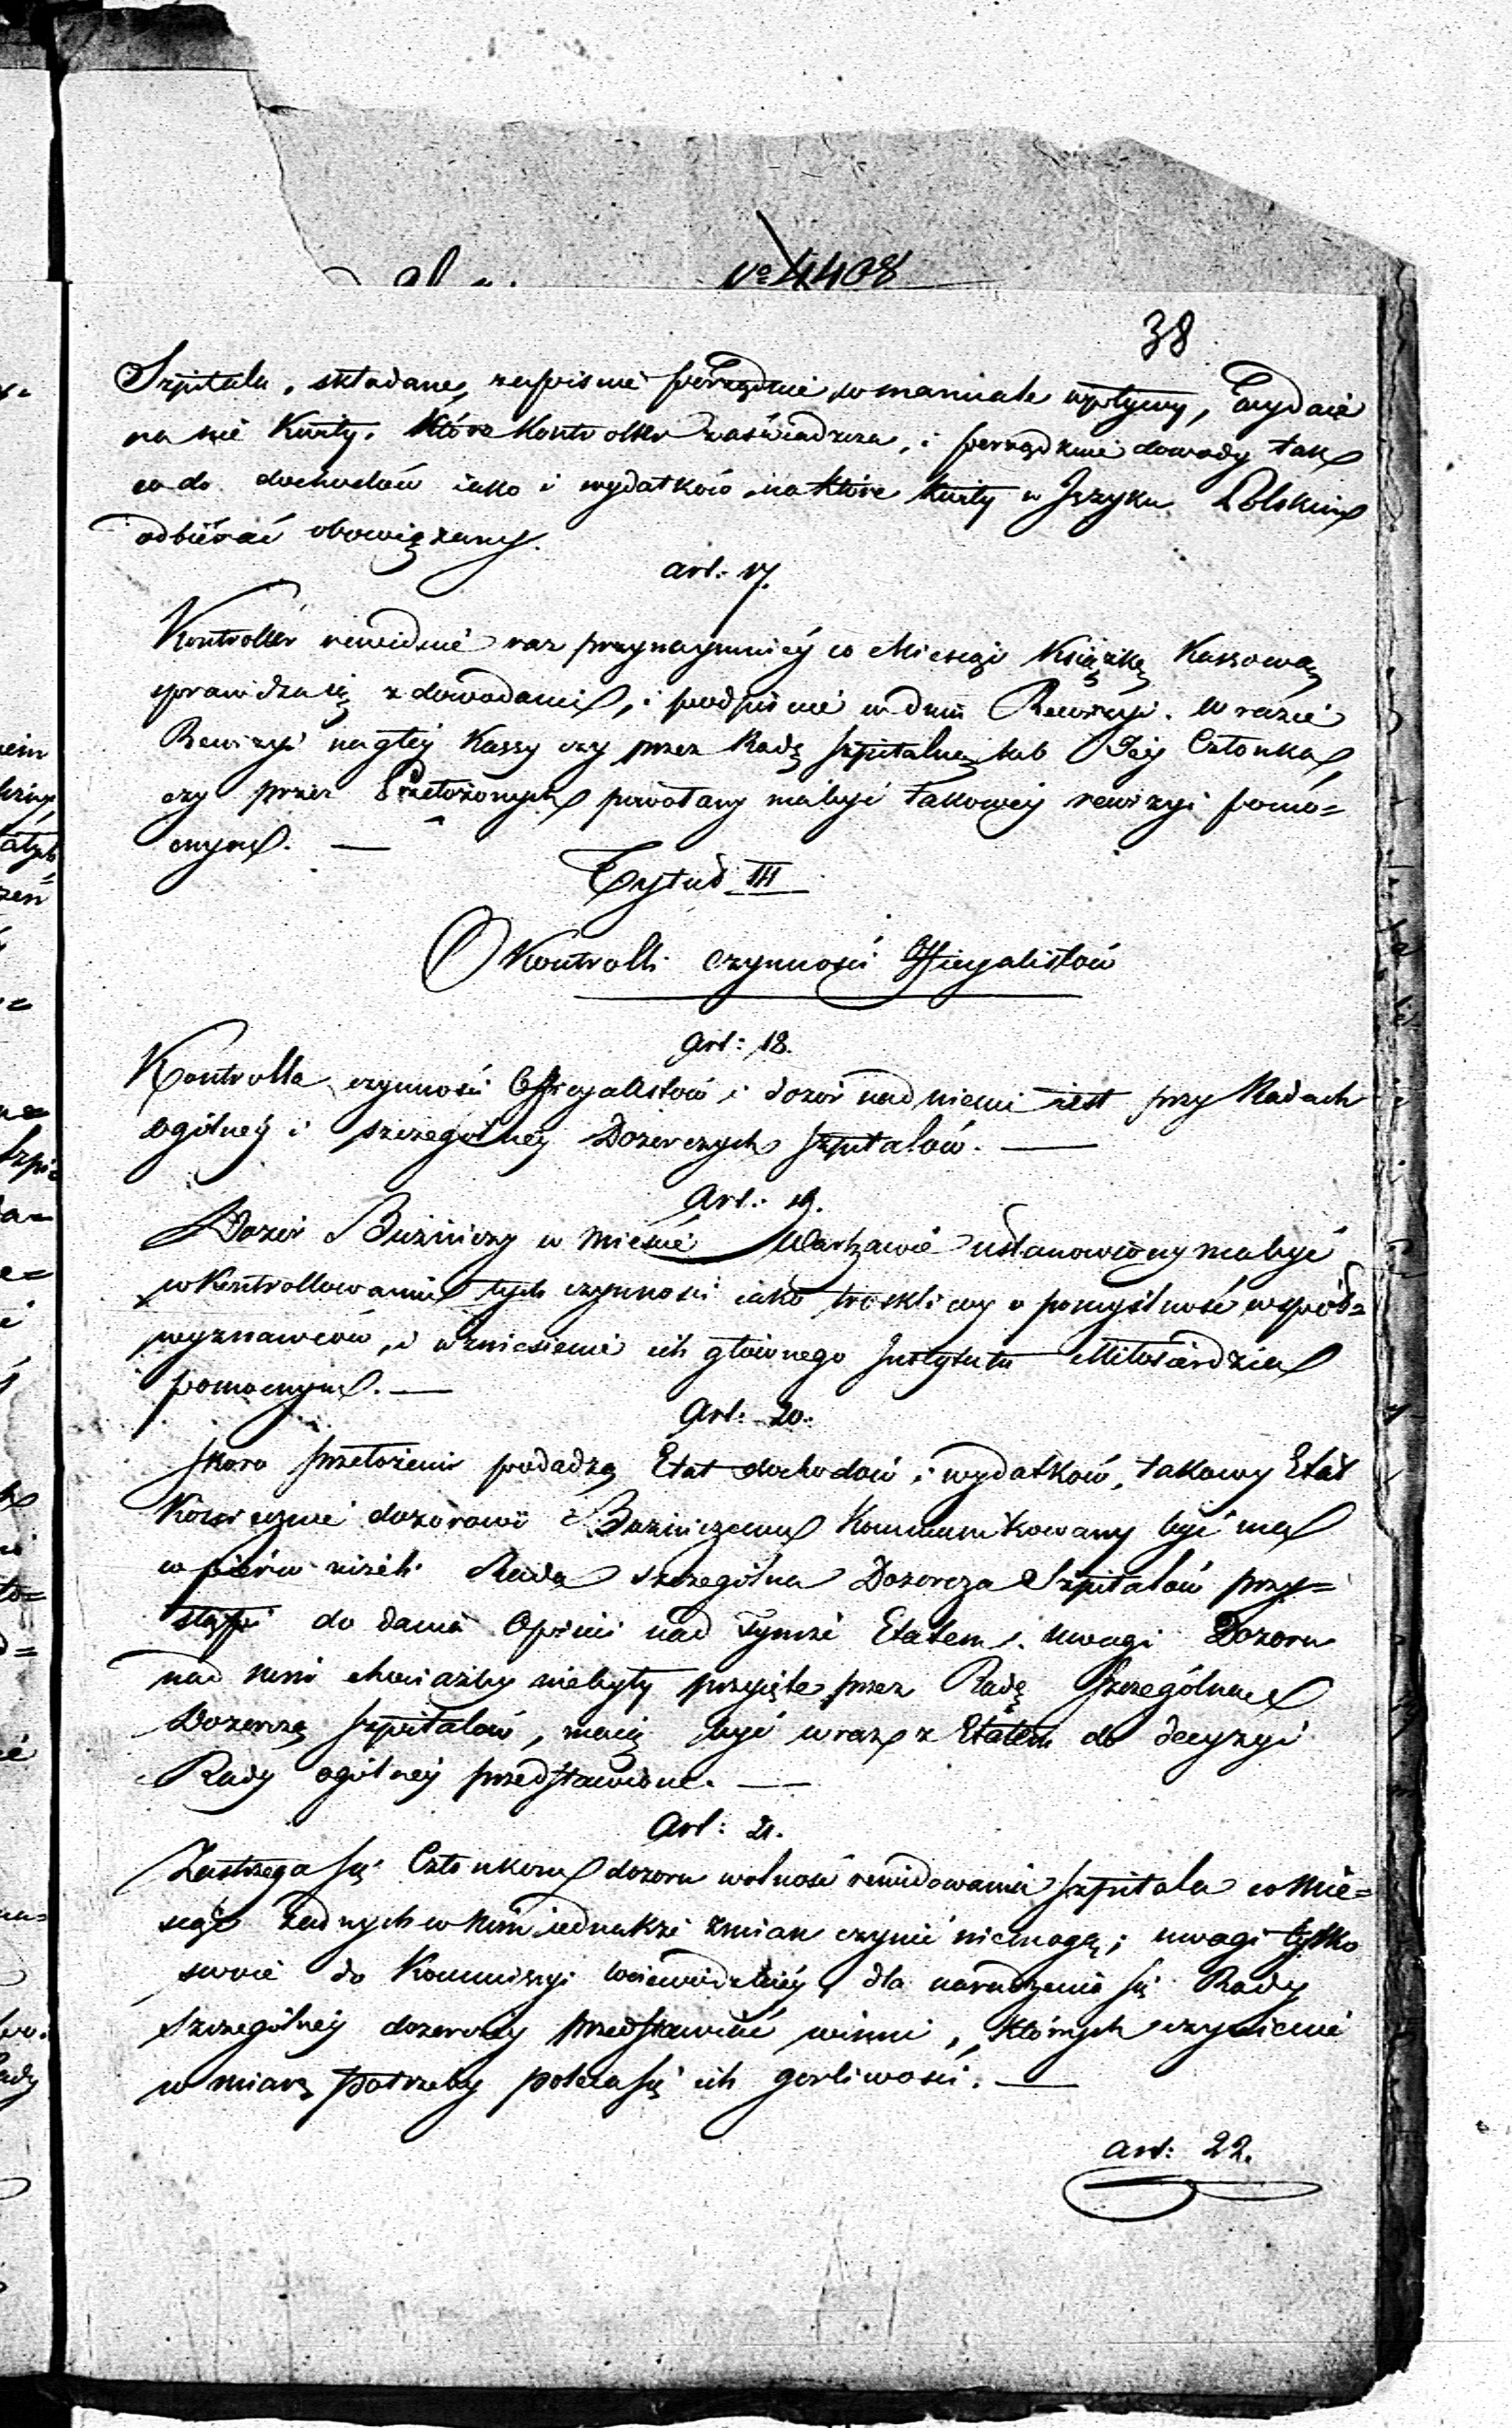 № 4408
38
Szpitalu, składane, zapisuie porządnie w manuale wpływy, wydaie
na nie Kwity, które Kontroller zaświadcza, i porządnie dowody tak
co do dochodów iako i wydatków na które kwity w Języku Polskim
odbiérać obowiązany.
art: 17.
Kontroller rewiduie raz przynaymniéy co Miesiąc Książkę Kassową
sprawdza ią z dowodami, i podpisuie w dniu Rewizyi. W razie
Rewizyi nagłéy Kassy czy przez Radę szpitalną lub Jéy Członka,
czy przez Przełożonych powołany ma bydź takowéy rewizyi pomo=
cnym. —
Tytuł III
O Kontrolli czynności Officyalistów
Art: 18.
Kontrolla czynności Officyalistów i dozór nad niemi iest przy Radach
ogólnéy i szczególnéy Dozorczych szpitalów. —
Art: 19.
Dozór Bużniczy w mieście Warszawie ustanowiony ma bydź
w Kontrollowaniu tych czynności iako troskliwy o pomyślność współ=
wyznawców, i wzniesienie ich głównego Instytutu Miłosierdzia
pomocnym. —
Art: 20.
Skoro przełożeni podadzą Etat dochodów i wydatków, takowy Etat
dozorowi Bużniczemu Kommunikowany być ma
w piérw niżeli Rada szczególna Dozorcza Szpitalów przy=
stąpi do dania Opinii nad Tymże Etatem. Uwagi Dozoru
nad nim chociażby niebyły przyięte przez Radę Szczególną
Dozorczą szpitalów, maią być wraz z Etatem do decyzyi
Rady ogólnéy przedstawione. —
Art: 21.
Zastrzega się Członkom dozoru wolność rewidowania szpitala co Mie=
siąc żadnych w nim iednakże zmian czynić niemogą; uwagi tylko
swoie do Kommissyi Woiewódzkiéy dla naradzenia się Rady
szczególnéy dozorczéy przedstawiać winni, których czynienie
w miarę potrzeby poleca się ich gorliwości. —
art: 22.